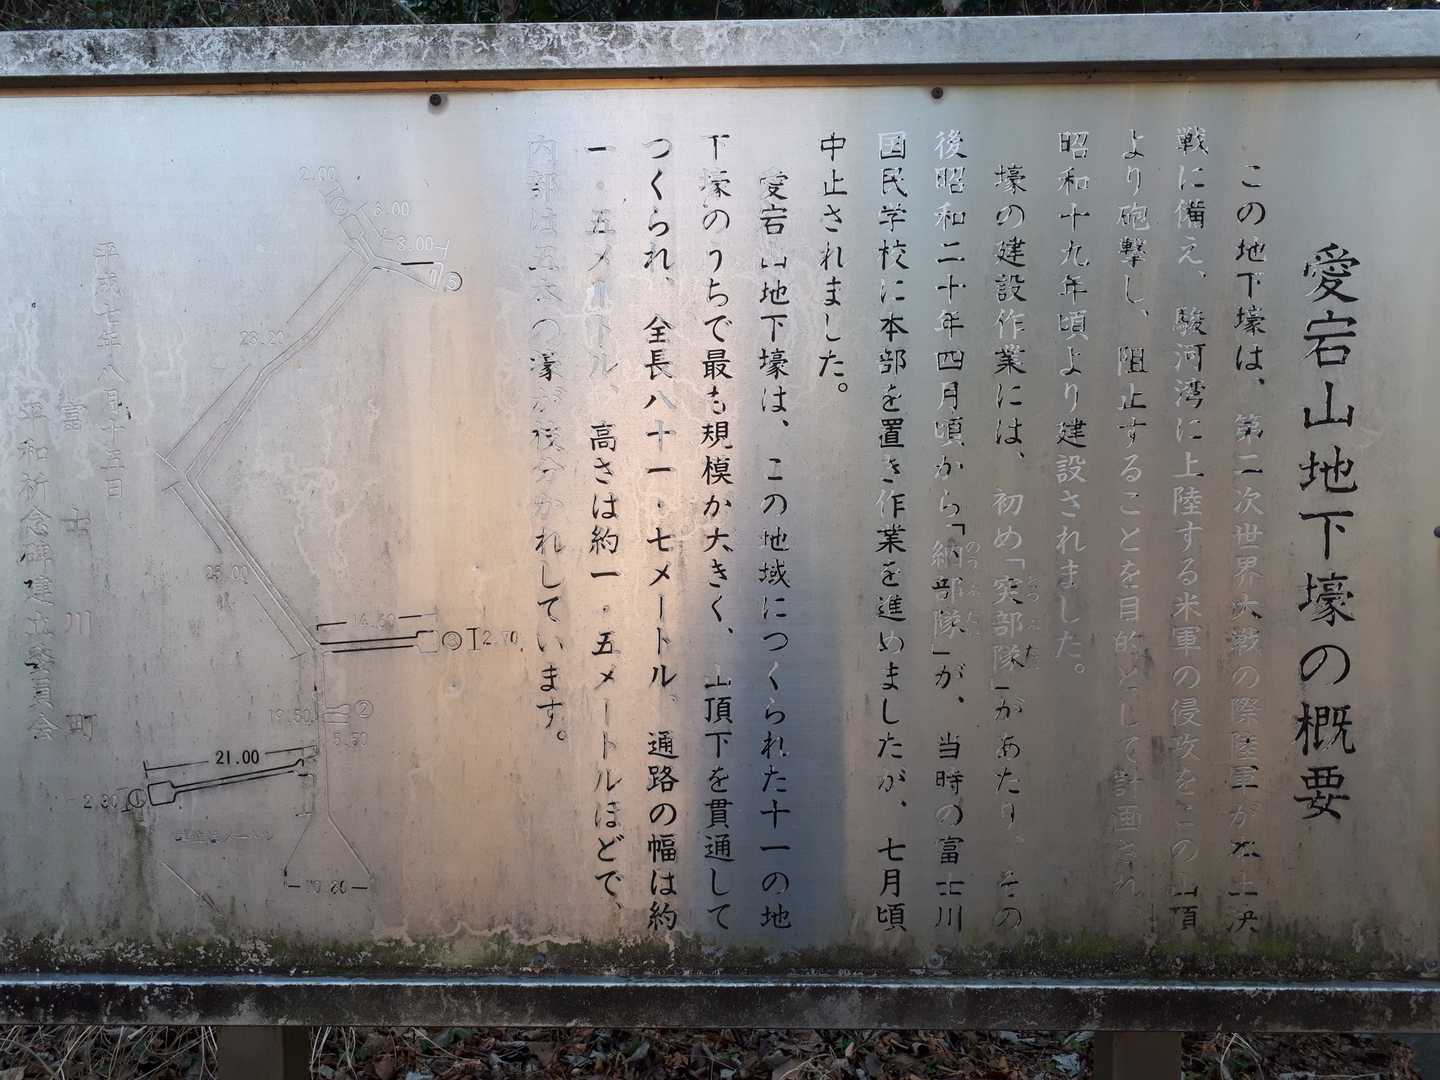 愛宕山地下壕の概要
この地下壕は、第二次世界大戦の際陸軍が本土決
戦に備え、駿河湾に上陸する米軍の侵攻をこの山頂
より砲撃し、阻止することを目的として計画され、
昭和十九年頃より建設されました。
壕の建設作業には、初め「突部隊」があたり、その
後昭和二十年四月頃から「納部隊」が、当時の富士川
国民学校に本部を置き作業を進めましたが、七月頃
中止されました。
愛宕山地下壕は、この地域につくられた十一の地
下壕のうちで最も規模が大きく、山頂下を貫通して
つくられ、全長八十一・七メートル、通路の幅は約
一・五メートル、高さは約一・五メートルほどで、
内部は五本の壕が枝分かれしています。
2.00
④
6.00
8.00
⑤
23.20
25.00
14.60
③
2.70
19.50
②
5.50
21.00
2.80
①
平成七年八月十五日
富士川町
平和祈念碑建立委員会